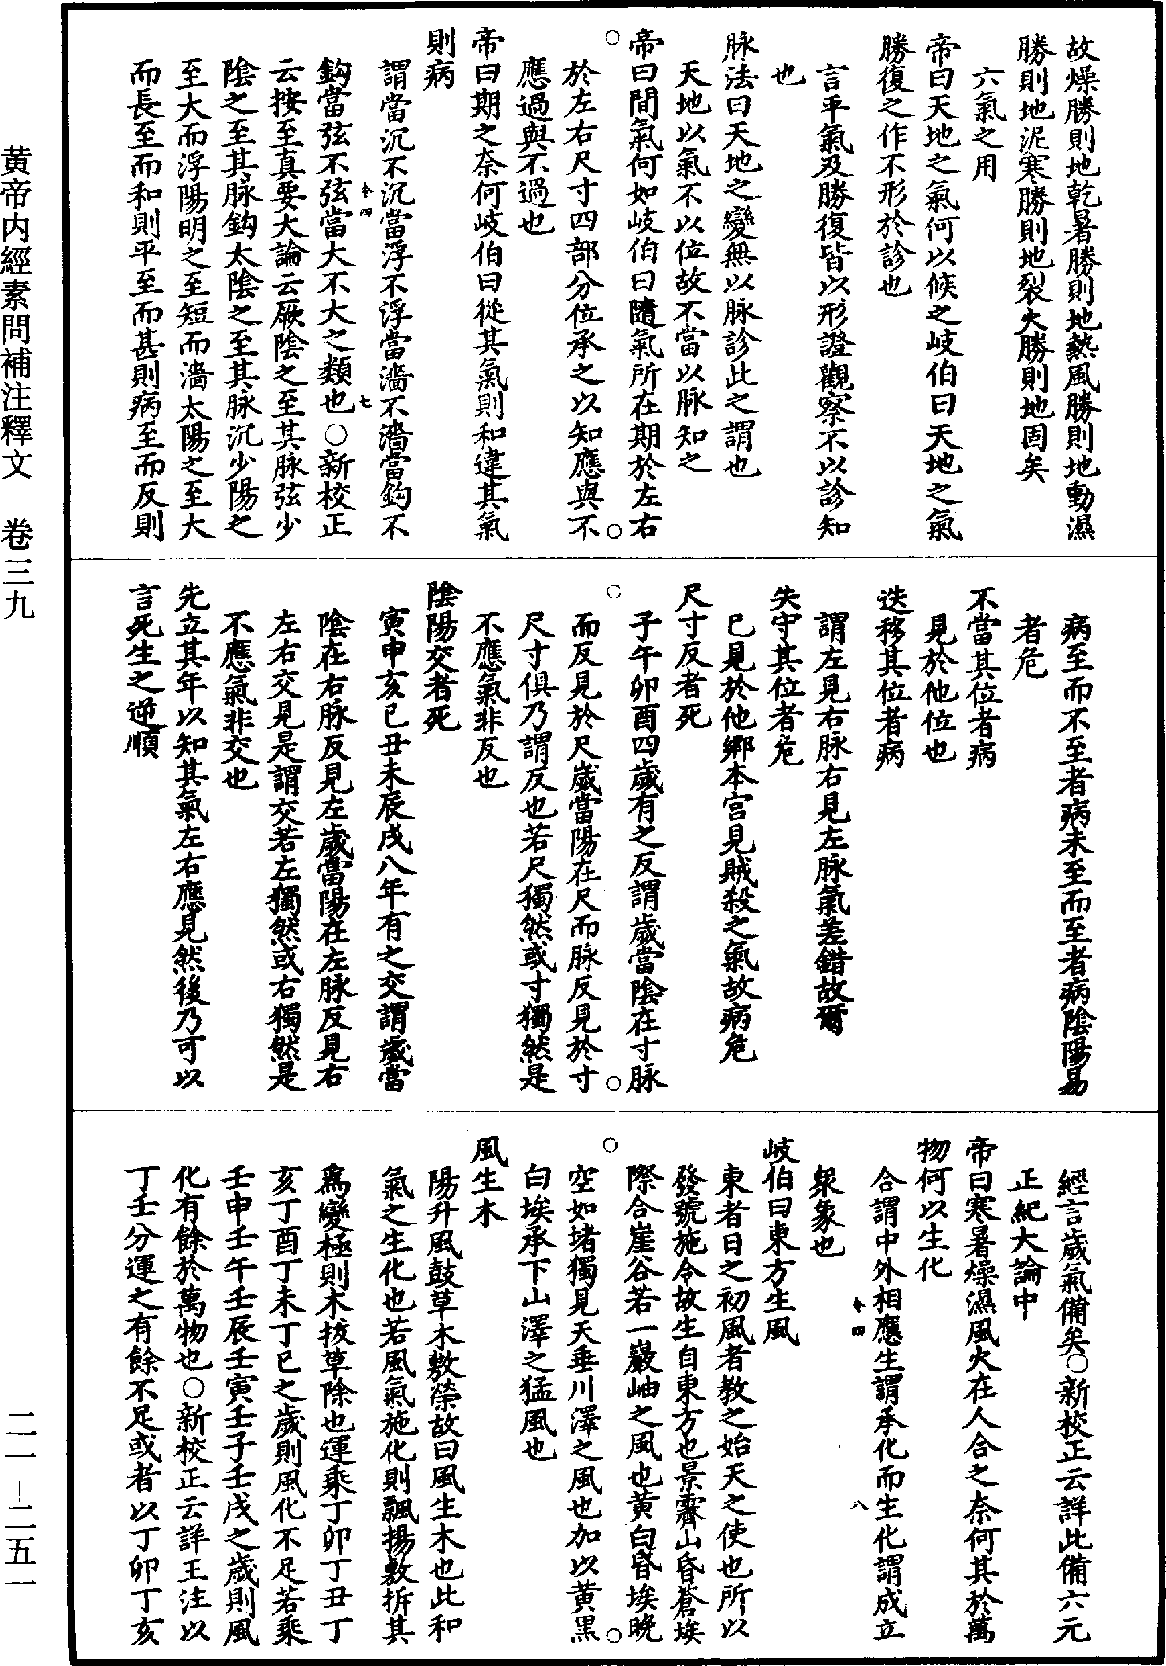 故燥勝則地乾暑勝則地熱風勝則地動濕
勝則地泥寒勝則地裂火勝則地固矣
六氣之用
帝曰天地之氣何以候之岐伯曰天地之氣
勝復之作不形於診也
言平氣及勝復皆以形證觀察不以診知
也
脉法曰天地之變無以脉診此之謂也
天地以氣不以位故不當以脉知之
帝曰間氣何如岐伯曰隨氣所在期於左右
於左右尺寸四部分位承之以知應與不
應過與不過也
帝曰期之奈何岐伯曰從其氣則和違其氣
則病
謂當沉不沉當浮不浮當濇不濇當鈎不
鈎當弦不弦當大不大之類也○新校正
云按至真要大論云厥陰之至其脉弦少
陰之至其脉鈎太陰之至其脉沉少陽之
至大而浮陽明之至短而濇太陽之至大
而長至而和則平至而甚則病至而反則
病至而不至者病未至而至者病陰陽易
者危
不當其位者病
見於他位也
迭移其位者病
謂左見右脉右見左脉氣差錯故爾
失守其位者危
已見於他鄉本宮見賊殺之氣故病危
尺寸反者死
子午卯酉四歲有之反謂歲當陰在寸脉
而反見於尺歲當陽在尺而脉反見於寸
尺寸俱乃謂反也若尺獨然或寸獨然是
不應氣非反也
陰陽交者死
寅申亥巳丑未辰戌八年有之交謂歲當
陰在右脉反見左歲當陽在左脉反見右
左右交見是謂交若左獨然或右獨然是
不應氣非交也
先立其年以知其氣左右應見然後乃可以
言死生之逆順
經言歲氣備矣○新校正云詳此備六元
正紀大論中
帝曰寒暑燥濕風火在人合之奈何其於萬
物何以生化
合謂中外相應生謂承化而生化謂成立
衆象也
岐伯曰東方生風
東者日之初風者教之始天之使也所以
發號施令故生自東方也景霽山昏蒼埃
際合崖谷若一巖岫之風也黃白昏埃晚
空如堵獨見天垂川澤之風也加以黃黑
白埃承下山澤之猛風也
風生木
陽升風鼓草木敷榮故曰風生木也此和
氣之生化也若風氣施化則飄揚敷拆其
爲變極則木拔草除也運乘丁卯丁丑丁
亥丁酉丁未丁巳之歲則風化不足若乘
壬申壬午壬辰壬寅壬子壬戌之歲則風
化有餘於萬物也○新校正云詳王注以
丁壬分運之有餘不足或者以丁卯丁亥
黃帝内經素問補注釋文 卷三九
二一-二五一